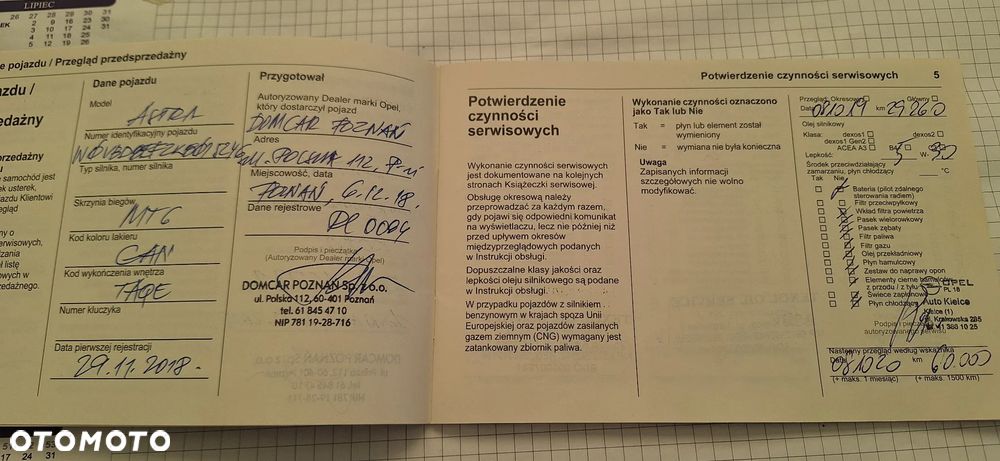 LIPIEC
26 27 28 29 30 31
2 9 16 23 30
3 10 17 24 31
4 11 18 25
5 12 19 26
e pojazdu / Przegląd przedsprzedażny
azdu /
edażny
Dane pojazdu
Model
ASTRA
Numer identyfikacyjny pojazdu
Typ silnika, numer silnika
Skrzynia biegów
MT6
Kod koloru lakieru
GAN
Kod wykończenia wnętrza
TAQE
Numer kluczyka
Data pierwszej rejestracji
29.11.2018.
Przygotował
Autoryzowany Dealer marki Opel,
który dostarczył pojazd
DOMCAR POZNAŃ
Adres
UL. POLSKA 112, P-ń
Miejscowość, data
POZNAŃ, 6.12.18.
Dane rejestrowe
Podpis i pieczątka
(Autoryzowany Dealer marki Opel)
DOMCAR POZNAŃ Sp. z o.o.
ul. Polska 112, 60-401 Poznań
tel. 61 845 47 10
NIP 781 19-28-716
Potwierdzenie czynności serwisowych 5
Potwierdzenie
czynności
serwisowych
Wykonanie czynności serwisowych
jest dokumentowane na kolejnych
stronach Książeczki serwisowej.
Obsługę okresową należy
przeprowadzać za każdym razem,
gdy pojawi się odpowiedni komunikat
na wyświetlaczu, lecz nie później niż
przed upływem okresów
międzyprzeglądowych podanych
w Instrukcji obsługi.
Dopuszczalne klasy jakości oraz
lepkości oleju silnikowego są podane
w Instrukcji obsługi.
W przypadku pojazdów z silnikiem
benzynowym w krajach spoza Unii
Europejskiej oraz pojazdów zasilanych
gazem ziemnym (CNG) wymagany jest
zatankowany zbiornik paliwa.
Wykonanie czynności oznaczono
jako Tak lub Nie
Tak = płyn lub element został
wymieniony
Nie = wymiana nie była konieczna
Uwaga
Zapisanych informacji
szczegółowych nie wolno
modyfikować.
Przegląd: Okresowy Główny
Data 08.10.19 km 29260
Olej silnikowy
Klasa: dexos1 dexos2
dexos1 Gen2
ACEA A3 B4
Lepkość: 5 W- 30
Środek przeciwdziałający
zamarzaniu, płyn chłodzący °C
Tak Nie
Bateria (pilot zdalnego
sterowania radiem)
Filtr przeciwpyłkowy
Wkład filtra powietrza
Pasek wielorowkowy
Pasek zębaty
Filtr paliwa
Filtr gazu
Olej przekładniowy
Płyn hamulcowy
Zestaw do naprawy opon
Elementy cierne hamulców
z przodu / z tyłu
Świece zapłonowe
Płyn chłodzący
OPEL
PL 18
Auto Kielce
Kielce (1)
Krakowska 285
Podpis i
autoryzowanego serwisu
Następny przegląd według wskaźnika
Data 08.10.20 km 60.000
(+ maks. 1 miesiąc) (+ maks. 1500 km)
OTOMOTO
17 24 31